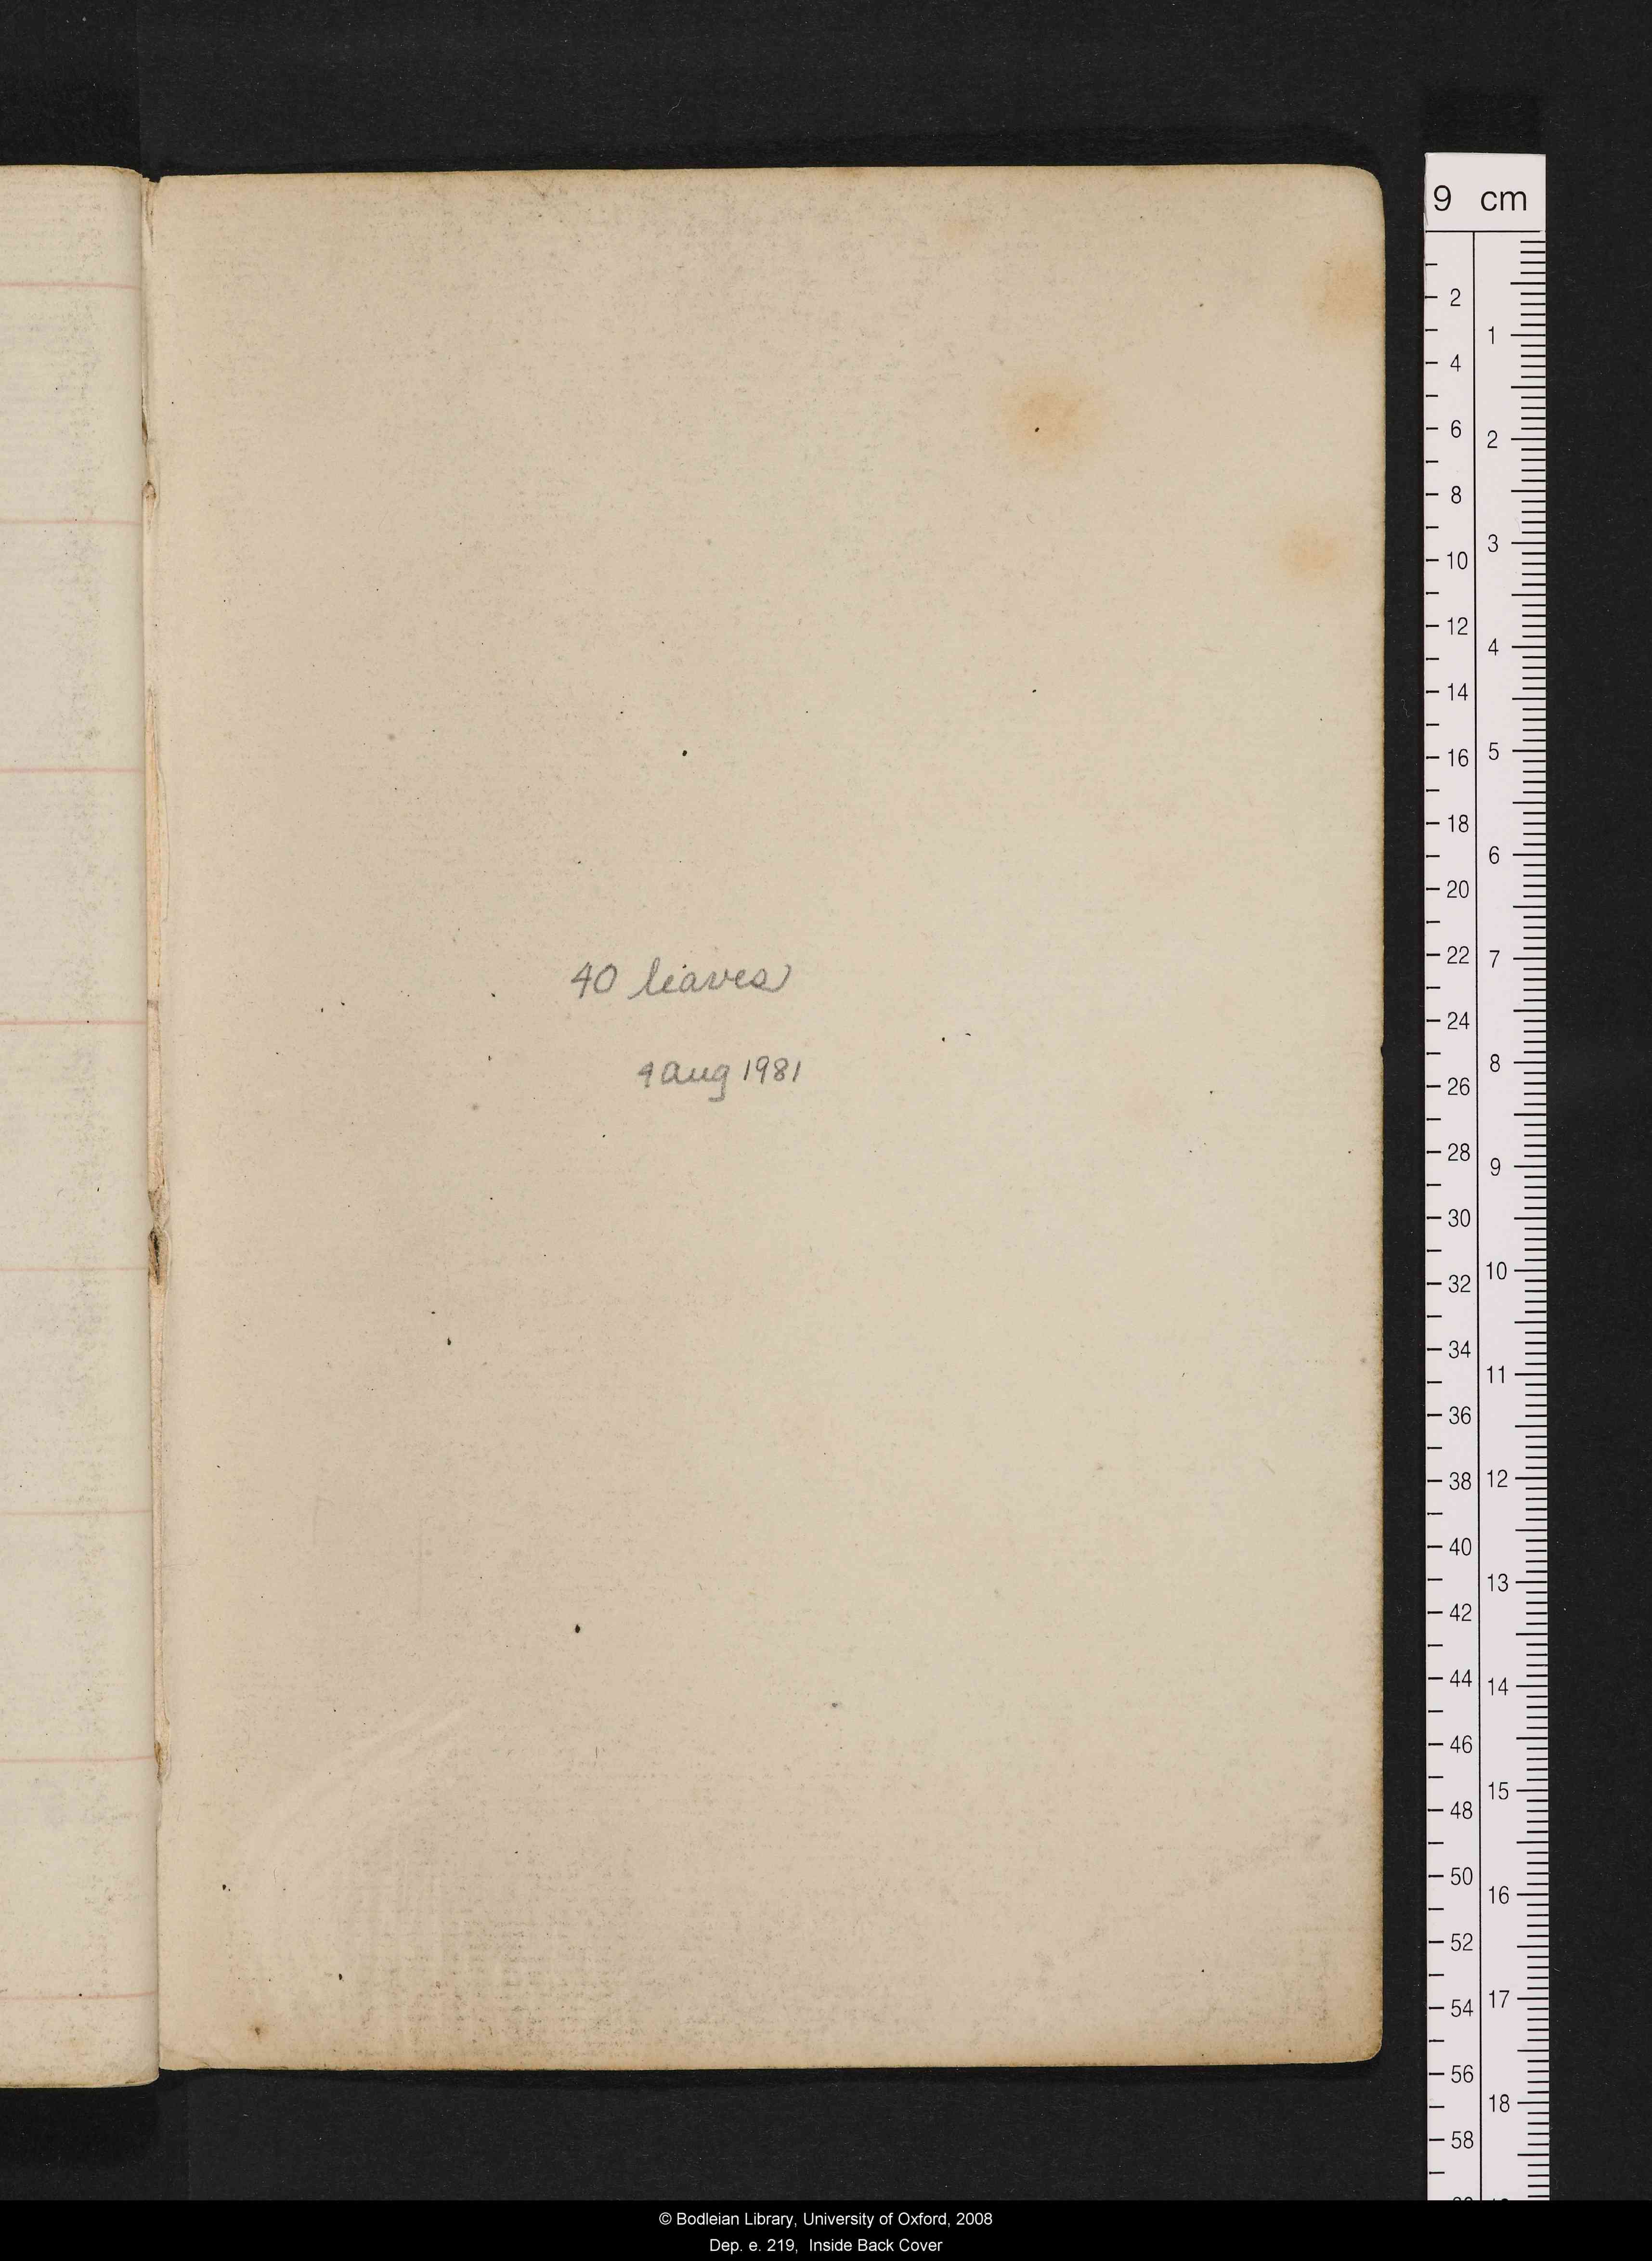 40 leaves
4 Aug 1981
9 cm
2
4
6
8
10
12
14
16
18
20
22
24
26
28
30
32
34
36
38
40
42
44
46
48
50
52
54
56
58
1
2
3
4
5
6
7
8
9
10
11
12
13
14
15
16
17
18
© Bodleian Library, University of Oxford, 2008
Dep. e. 219, Inside Back Cover